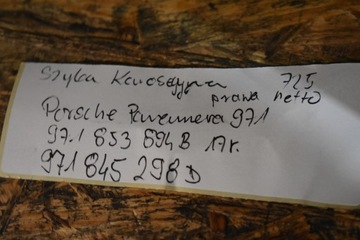 Szyba Karoseryjna 725
prawa netto
Porsche Panamera 971
971 853 894B 17r.
971 845 298D